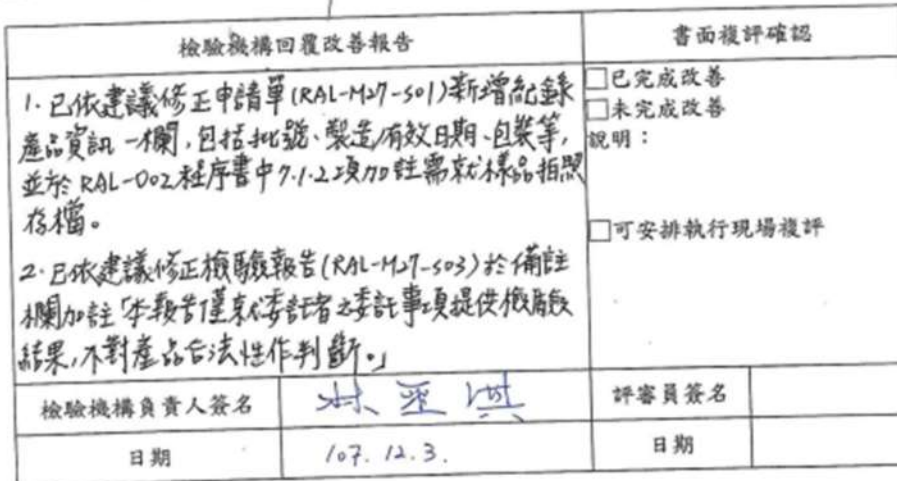 檢驗機構回覆改善報告
書面複評確認
1. 已依建議修正申請單(RAL-M27-S01)新增紀錄
產品資訊一欄,包括批號、製造/有效日期、包裝等,
並於RAL-002程序書中7.1.2項加註需就樣品拍照
存檔。
2. 已依建議修正檢驗報告(RAL-M27-S03)於備註
欄加註「本報告僅就委託者之委託事項提供檢驗
結果,不對產品合法性作判斷。」
□已完成改善
□未完成改善
說明:
□可安排執行現場複評
檢驗機構負責人簽名
評審員簽名
日期
107.12.3.
日期